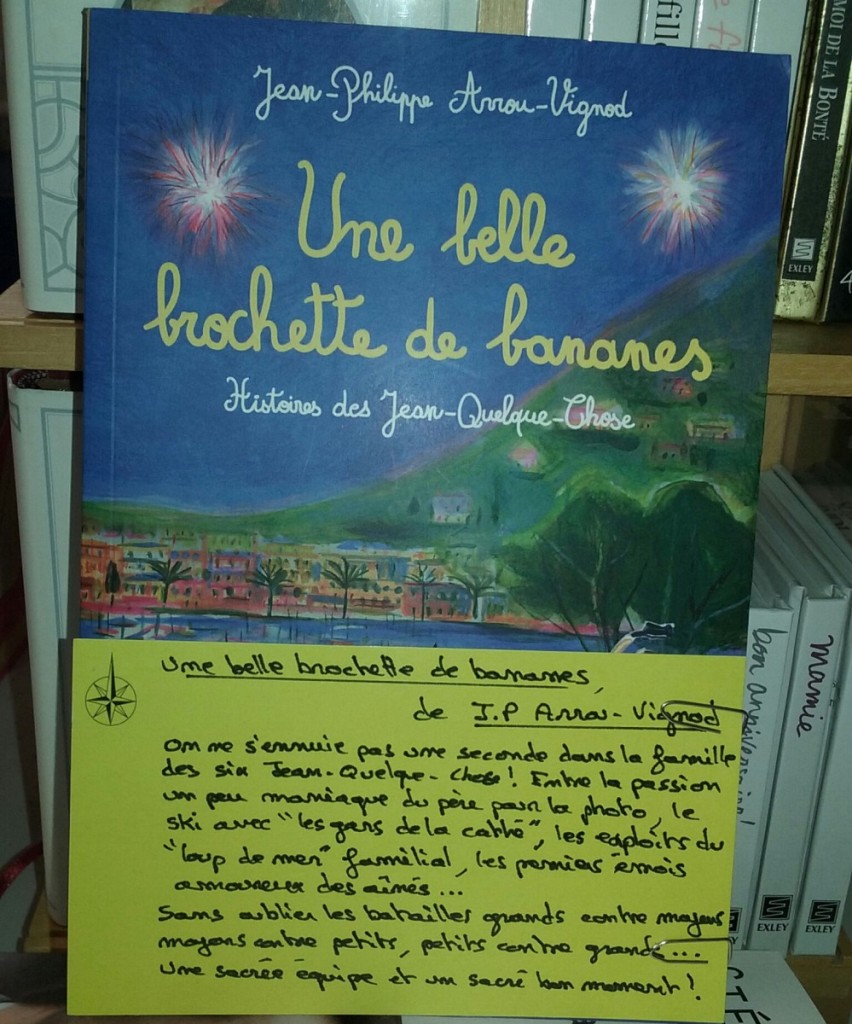 Jean-Philippe Arrou-Vignod
Une belle
brochette de bananes
Histoires des Jean-Quelque-Chose
Une belle brochette de bananes,
de J.P Arrou-Vignod
On ne s'ennuie pas une seconde dans la famille
des six Jean-Quelque-Chose! Entre la passion
un peu maniaque du père pour la photo, le
ski avec "les gars de la cathé", les exploits du
"loup de mer" familial, les premiers émois
amoureux des aînés...
Sans oublier les batailles grands contre moyens
moyens contre petits, petits contre grands...
Une sacrée équipe et un sacré bon moment!
MOI DE LA BONTÉ
EXLEY
bon anniversaire!
mamie
EXLEY
EXLEY